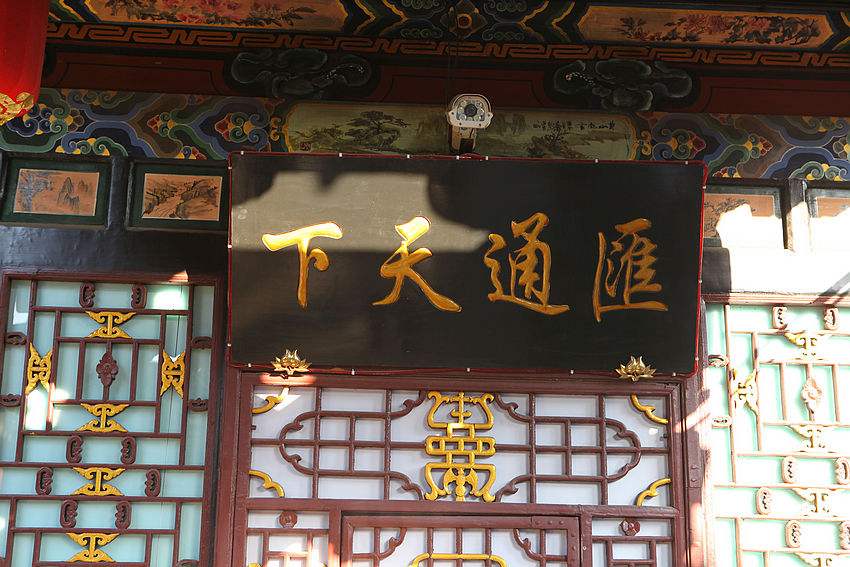 匯通天下